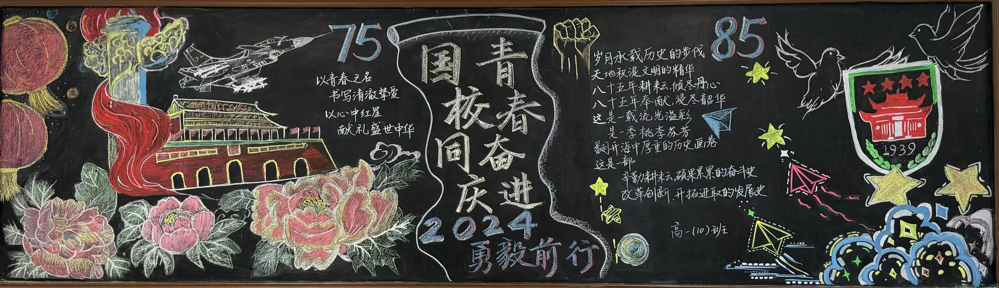 75
以青春之名
书写清澈挚爱
以心中红星
献礼盛世中华
青春奋进
国校同庆
2024
勇毅前行
85
岁月承载历史的步伐
天地积淀文明的精华
八十五年耕耘,倾尽丹心
八十五年奉献,尽韶华
这是一载流光溢彩
是一季桃李芬芳
翻开海中厚重的历史画卷
这是一部
辛勤耕耘,硕果累累的奋斗史
改革创新,开拓进取的发展史
高一(10)班
1939